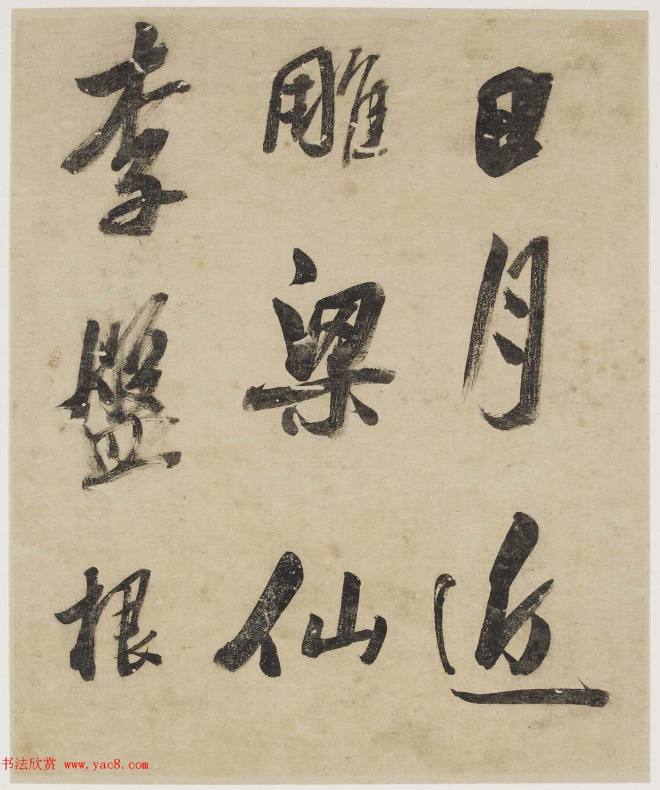 日月近
雕梁仙
李盤根
书法欣赏 www.yac8.com